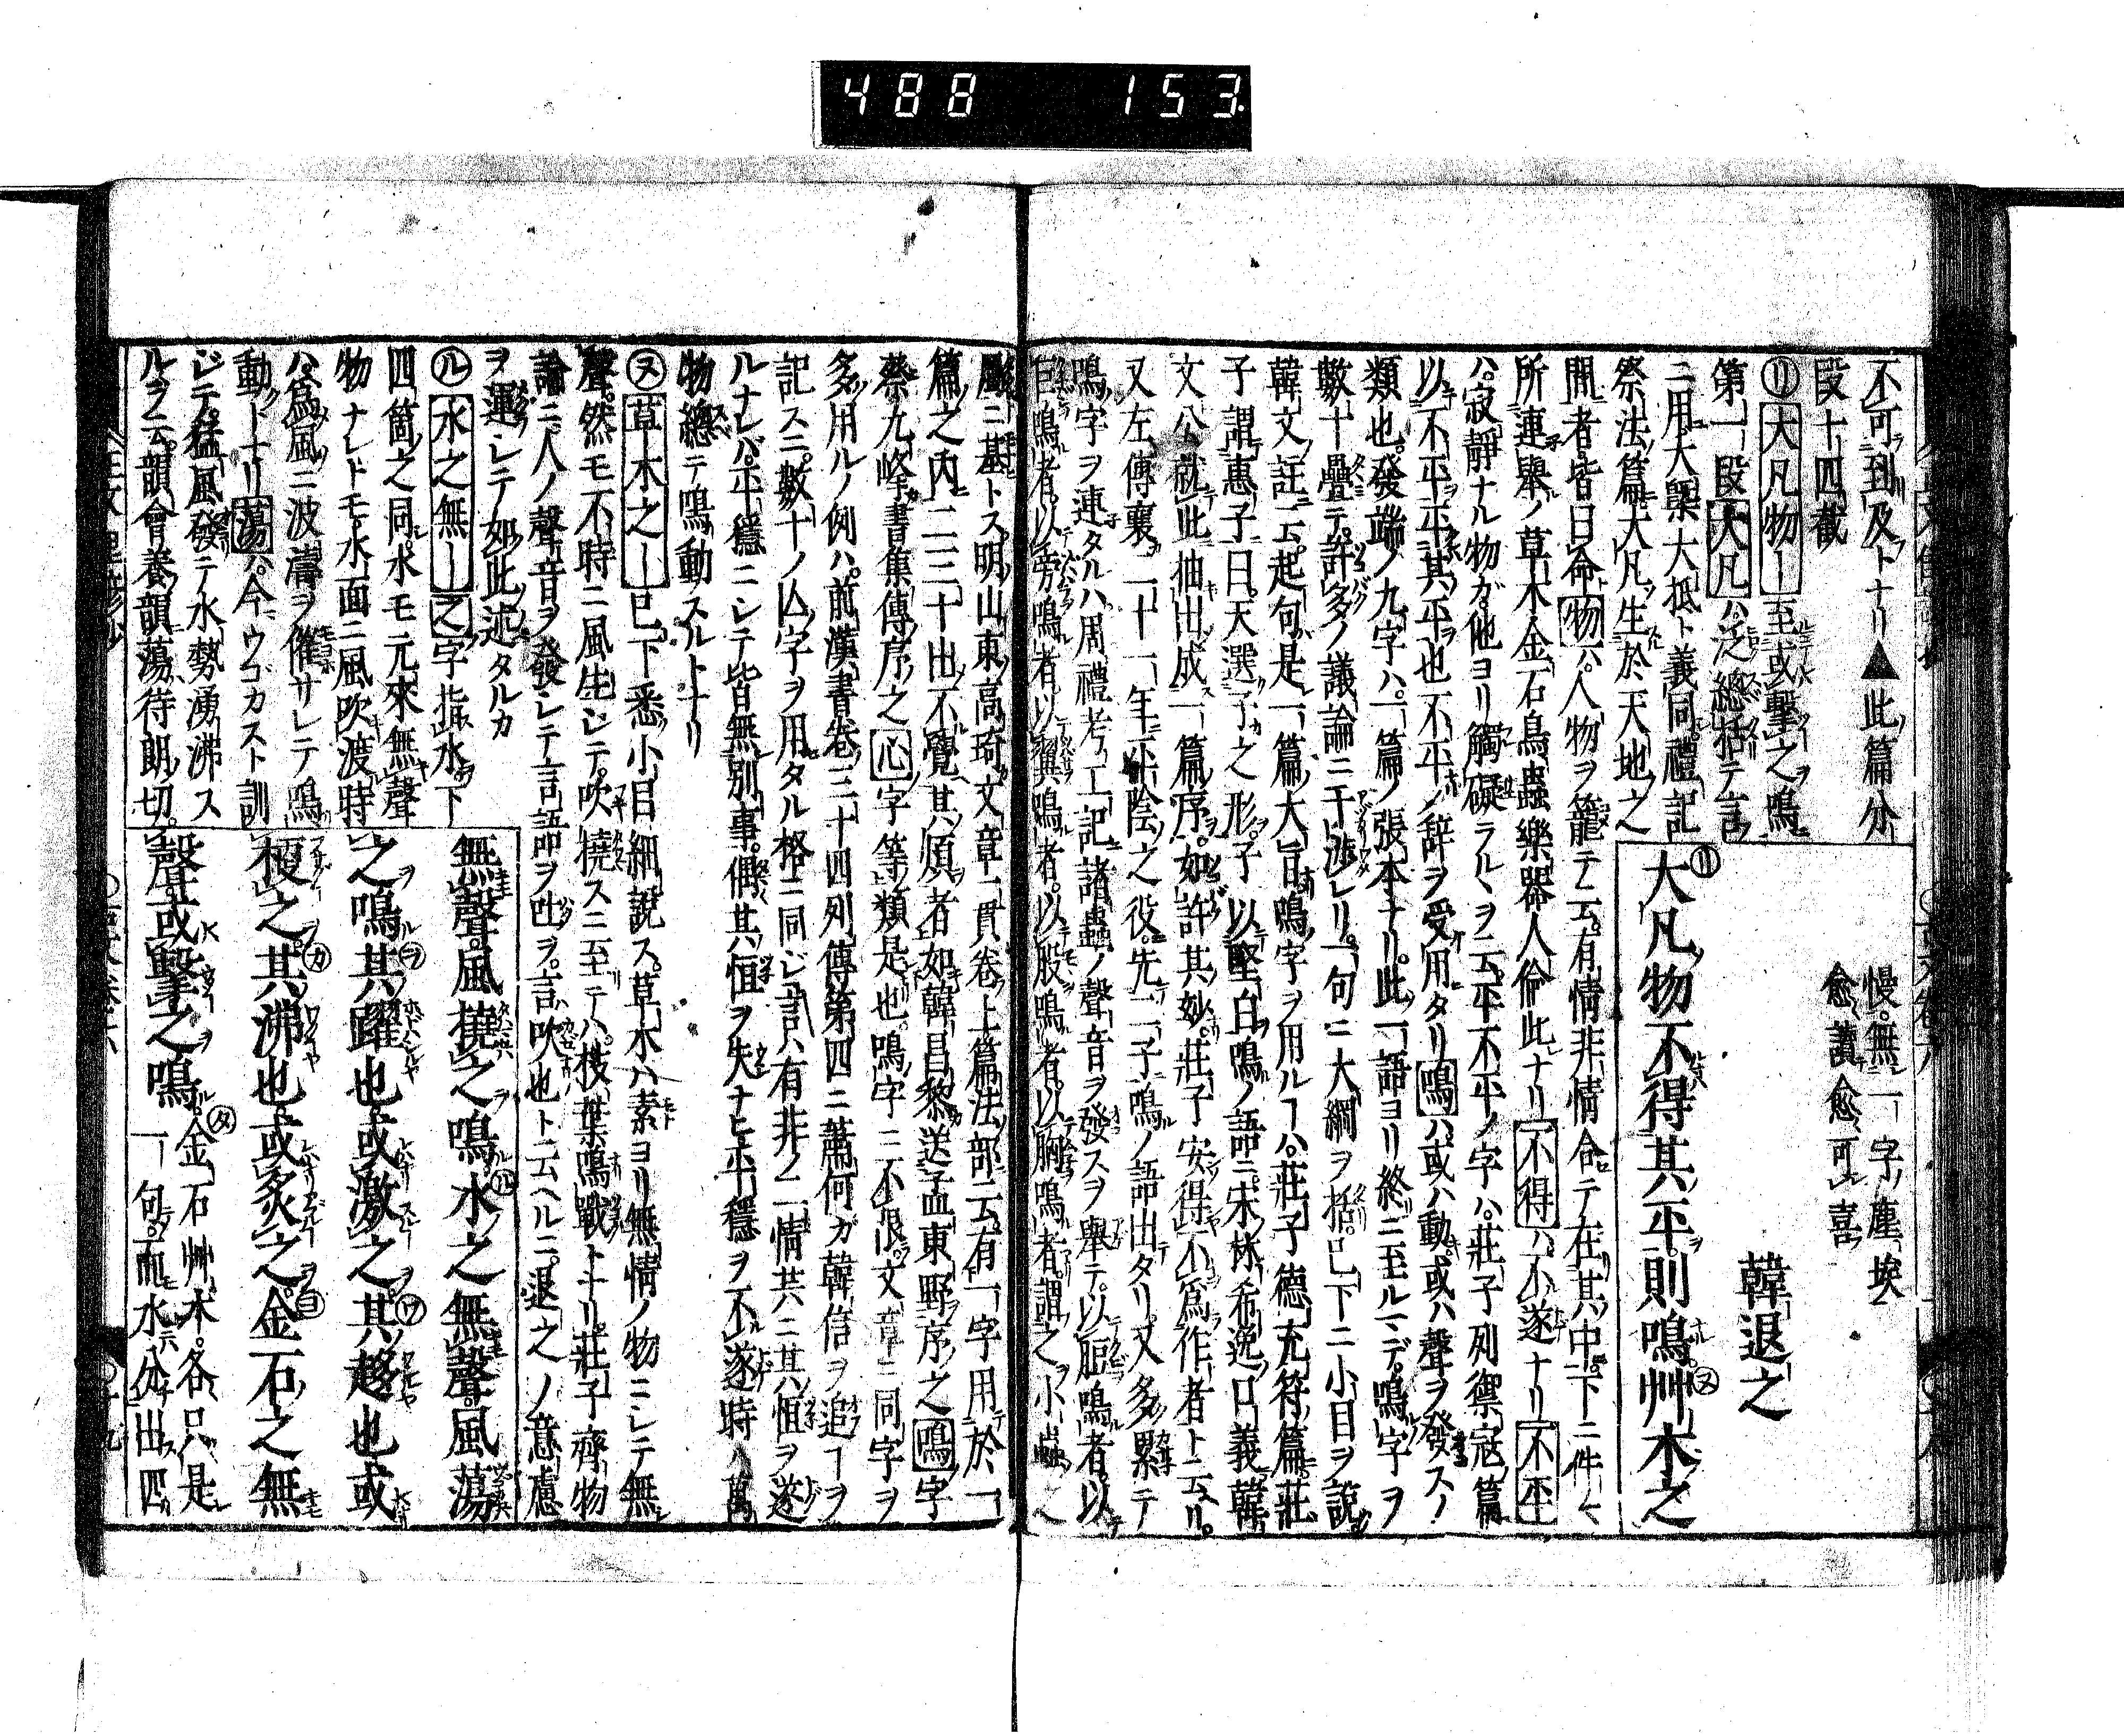 488 153
不可到及トナリ▲此篇分
段十四截
慢無一字塵埃
愈讀愈可喜
韓退之
大凡物不得其平則鳴艸木之
㋷大凡物—至或擊之鳴
第一段大凡ハ泛總括テ言
ニ用大槩大抵ト義同禮記
祭法篇大凡生於天地之
間者皆曰命物ハ人物ヲ籠テ云有情非情合テ在其中下ニ件々
所連舉ノ草木金石鳥蟲樂器人倫此ナリ不得ハ不遂ナリ不平
ハ寂靜ナル物ガ他ヨリ觸礙ラルヽヲ云平不平ノ字ハ莊子列禦寇篇
以不平平其平也不平ノ辭ヲ受用タリ鳴ハ或ハ動或ハ聲ヲ發スノ
類也發端ノ九字ハ一篇ノ張本ナリ此一語ヨリ終ニ至ルマデ鳴字ヲ
數十疊テ許多ノ議論ニ干渉レリ一句ニ大綱ヲ括已下ニ小目ヲ說
韓文註云起句是一篇大旨鳴字ヲ用ルヿハ莊子德充符篇莊
子謂惠子曰天選子之形子以堅白鳴ノ語ニ宋林希逸口義韓
文公就此抽出成一篇序如許其妙莊子安得不爲作者ト云リ
又左傳襄二十一年平陰之役先二子鳴ノ語出タリ又多累テ
鳴字ヲ連タルハ周禮考工記諸蟲ノ聲音ヲ發スヲ舉テ以脰鳴者以
旁鳴者以翼鳴者以股鳴者以胸鳴者謂之小蟲之
ニ基トス明山東高琦文章一貫卷上篇法部云有一字用於一
篇之内二三十出不覺其煩者如韓昌黎送孟東野序之鳴字
蔡九峰書集傳序之心字等類是也鳴字ニ不限文章ニ同字ヲ
多用ルノ例ハ前漢書卷三十四列傳第四ニ蕭何ガ韓信ヲ追ヿヲ
記スニ數十ノ亾字ヲ用タル格ニ同ジ言ハ有非ノ二情共ニ其恒ヲ遂
ルナレバ平穩ニシテ皆無別事偶其恒ヲ失ナヒ平穩ヲ不遂時ハ萬
物總テ鳴動スルトナリ
㋦草木之—已下悉小目細說ス草木ハ素ヨリ無情ノ物ニシテ無
聲然モ不時ニ風生ジテ吹撓スニ至テハ枝葉鳴戰トナリ莊子齊物
論ニ人ノ聲音ヲ發シテ言語ヲ吐ヲ言吹也ト云ヘルニ退之ノ意慮
ヲ運シテ如此述タルカ
㋸水之無—之字指水下
四箇之同水モ元來無聲
物ナレドモ水面ニ風吹渡時
ハ爲風ニ波濤ヲ催サレテ鳴
動ーナリ蕩ハ今ウゴカスト訓
ジテ猛風發テ水勢湧沸ス
ルヲ云韻會養韻蕩待朗切
無聲風撓之鳴水之無聲風蕩
之鳴其躍也或激之其趨也或
梗之其沸也或炙之金石之無
聲或擊之鳴
金石艸木各只是
一句而水分出四